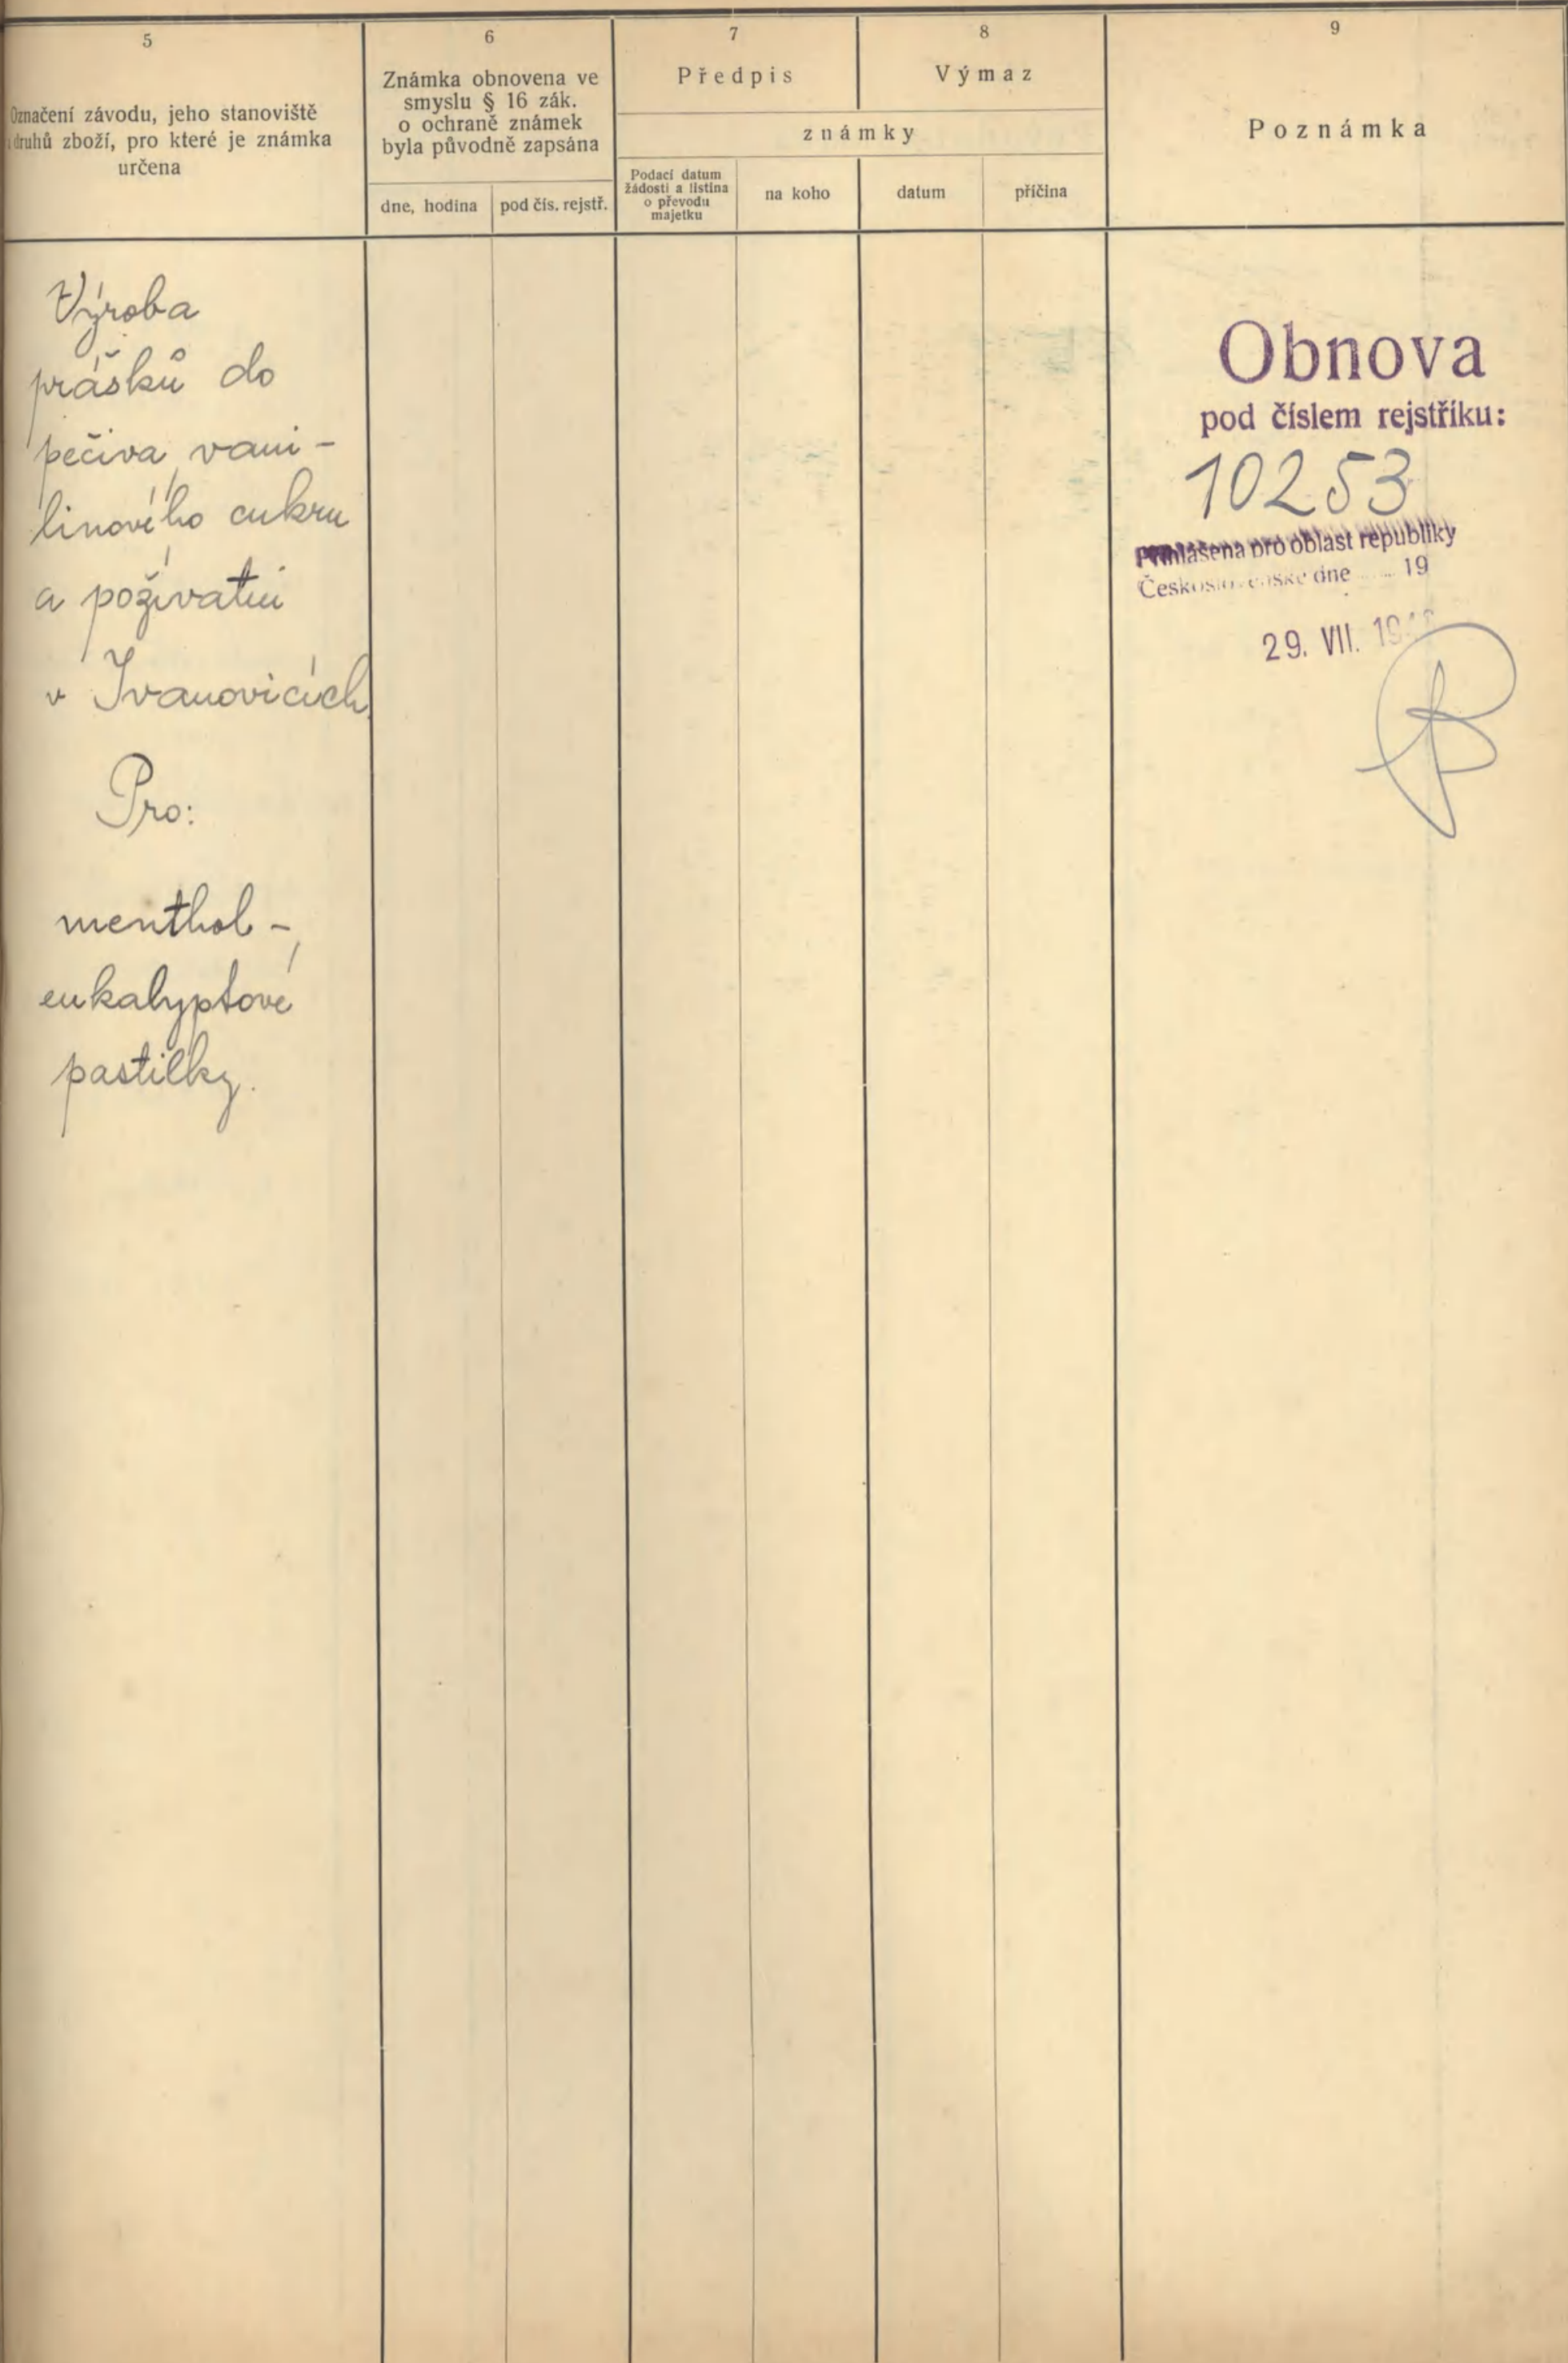 5
Označení závodu, jeho stanoviště
druhů zboží, pro které je známka
určena
6
Známka obnovena ve
smyslu § 16 zák.
o ochraně známek
byla původně zapsána
dne, hodina
pod čís. rejstř.
7
Předpis
8
Výmaz
známky
Podací datum
žádosti a listina
o převodu
majetku
na koho
datum
příčina
9
Poznámka
Výroba
prášků do
pečiva, vani-
linového cukru
a poživatin
v Ivanovicích
Pro:
menthol-
eukalyptové
pastilky.
Obnova
pod číslem rejstříku:
10253
Přihlášena pro oblast republiky
Československé dne 19
29. VII.